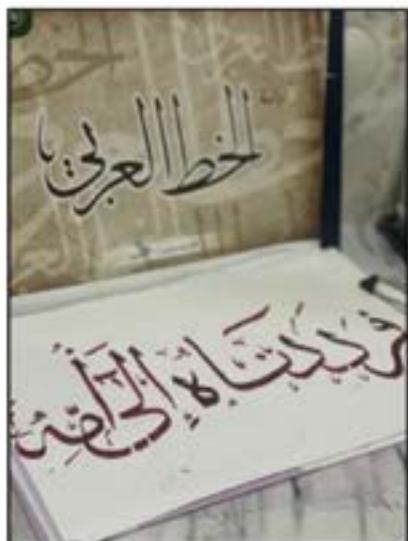 الخط العربي
فرددناه إلى أمه